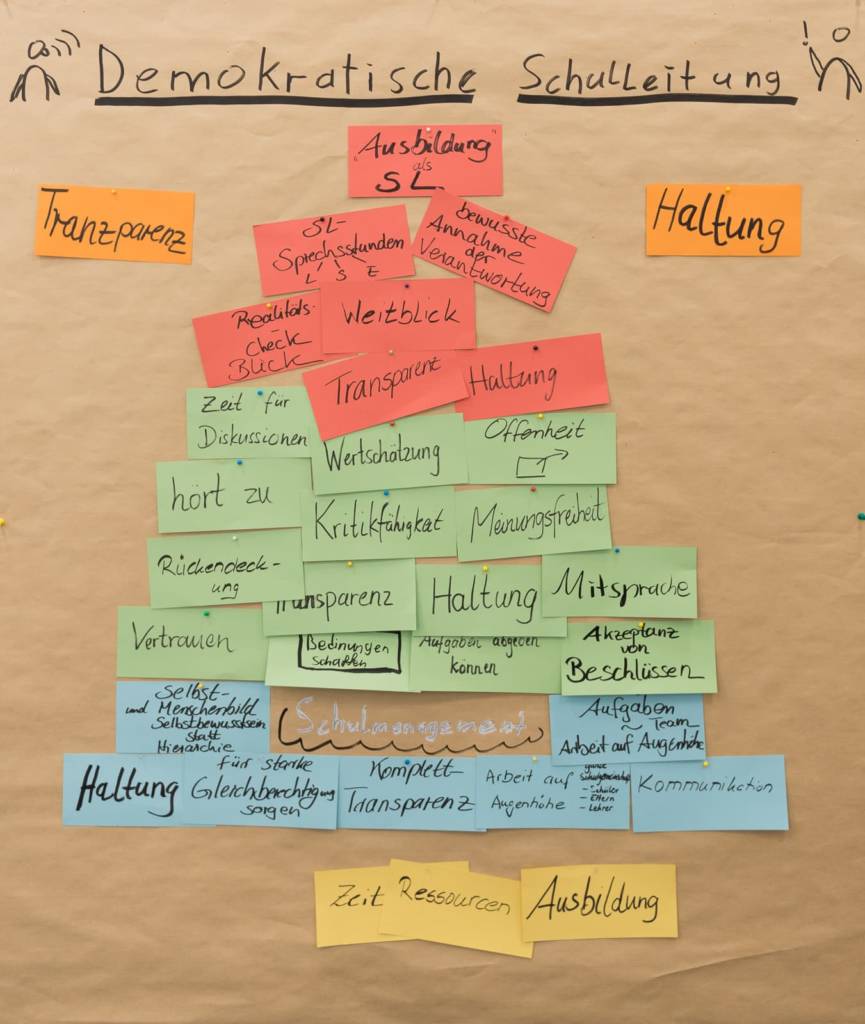 Demokratische Schulleitung
"Ausbildung"
als
SL
Tranzparenz
Haltung
SL-
Sprechsstunden
L S E
bewusste
Annahme
der
Verantwortung
Realitäts-
check
Blick
Weitblick
Transparent
Haltung
Zeit für
Diskussionen
Wertschätzung
Offenheit
hört zu
Kritikfähigkeit
Meinungsfreiheit
Rückendeck-
ung
Transparenz
Haltung
Mitsprache
Vertrauen
Bedinungen
schaffen
Aufgaben abgeben
können
Akzeptanz
von
Beschlüssen
Selbst-
und Menschenbild
Selbstbewusstsein
statt
Hierarchie
Schulmanagement
Aufgaben
~ Team
Arbeit auf Augenhöhe
Haltung
für starke
Gleichberechtigung
sorgen
Komplett-
Transparenz
Arbeit auf
Augenhöhe
ganze
Schulgemeinschaft
- Schüler
- Eltern
- Lehrer
Kommunikation
Zeit
Ressourcen
Ausbildung